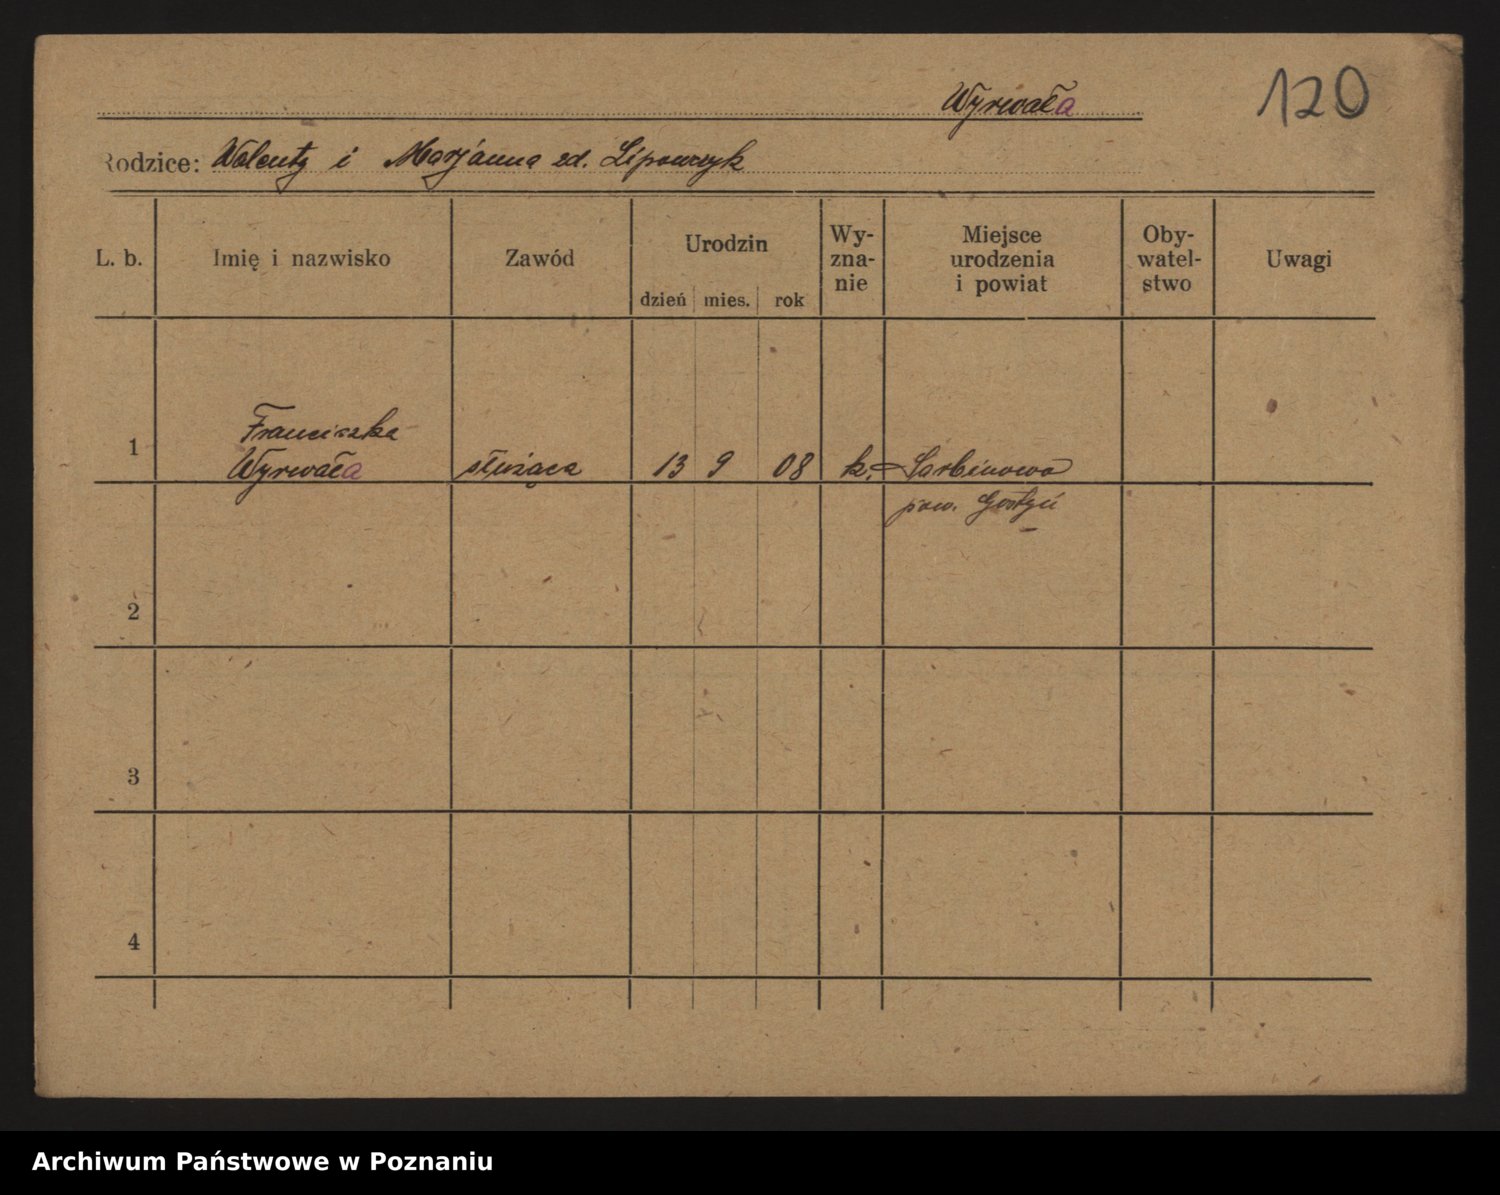 Wyrwała
120
Rodzice: Walenty i Marjanna zd. Lipowczyk
L. b.
Imię i nazwisko
Zawód
Urodzin
dzień mies. rok
Wy-
zna-
nie
Miejsce
urodzenia
i powiat
Oby-
watel-
stwo
Uwagi
1
Franciszka
Wyrwała
służąca
13 9 08
k.
Sarbinowo
pow. Gostyń
2
3
4
Archiwum Państwowe w Poznaniu